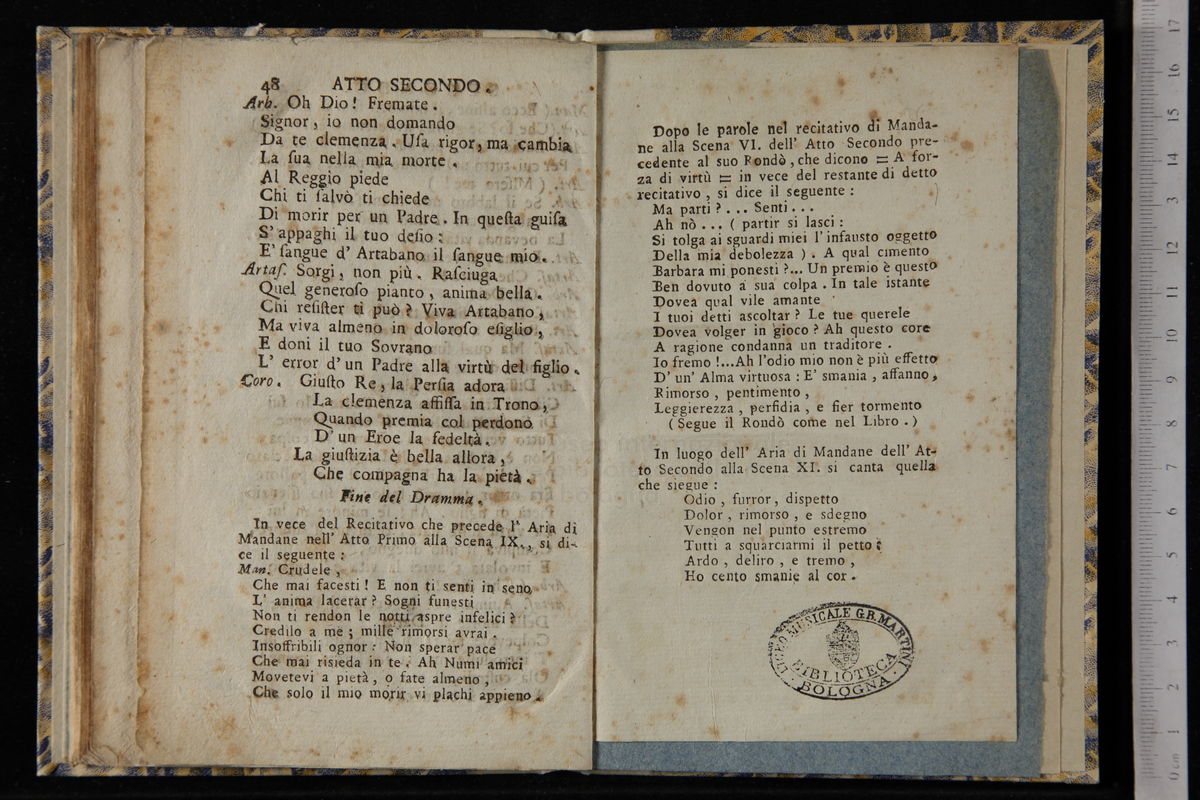 48 ATTO SECONDO.
Arb. Oh Dio! Fremate.
Signor, io non domando
Da te clemenza. Uſa rigor, ma cambia
La ſua nella mia morte.
Al Reggio piede
Chi ti ſalvò ti chiede
Di morir per un Padre. In queſta guiſa
S' appaghi il tuo deſio:
E' ſangue d' Artabano il ſangue mio.
Artaſ. Sorgi, non più. Raſciuga
Quel generoſo pianto, anima bella.
Chi reſiſter ti può? Viva Artabano,
Ma viva almeno in doloroſo eſiglio,
E doni il tuo Sovrano
L' error d' un Padre alla virtù del figlio.
Coro. Giuſto Re, la Perſia adora
La clemenza aſſiſſa in Trono,
Quando premia col perdono
D' un Eroe la fedeltà.
La giuſtizia è bella allora,
Che compagna ha la pietà.
Fine del Dramma.
In vece del Recitativo che precede l' Aria di
Mandane nell' Atto Primo alla Scena IX., si di-
ce il seguente:
Man. Crudele,
Che mai facesti! E non ti senti in seno
L' anima lacerar? Sogni funesti
Non ti rendon le notti aspre infelici?
Credilo a me; mille rimorsi avrai.
Insoffribili ognor: Non sperar pace
Che mai risieda in te. Ah Numi amici
Movetevi a pietà, o fate almeno,
Che solo il mio morir vi plachi appieno.
Dopo le parole nel recitativo di Manda-
ne alla Scena VI. dell' Atto Secondo pre-
cedente al suo Rondò, che dicono = A for-
za di virtù = in vece del restante di detto
recitativo, si dice il seguente:
Ma parti?... Senti...
Ah nò... ( partir si lasci:
Si tolga ai sguardi miei l' infausto oggetto
Della mia debolezza ). A qual cimento
Barbara mi ponesti?... Un premio è questo
Ben dovuto a sua colpa. In tale istante
Dovea qual vile amante
I tuoi detti ascoltar? Le tue querele
Dovea volger in gioco? Ah questo core
A ragione condanna un traditore.
Io fremo!...Ah l'odio mio non è più effetto
D' un' Alma virtuosa: E' smania, affanno,
Rimorso, pentimento,
Leggierezza, perfidia, e fier tormento
( Segue il Rondò come nel Libro.)
In luogo dell' Aria di Mandane dell' At-
to Secondo alla Scena XI. si canta quella
che siegue:
Odio, furror, dispetto
Dolor, rimorso, e sdegno
Vengon nel punto estremo
Tutti a squarciarmi il petto:
Ardo, deliro, e tremo,
Ho cento smanie al cor.
LICEO MUSICALE G.B. MARTINI
BIBLIOTECA
· BOLOGNA ·
0 cm 1 2 3 4 5 6 7 8 9 10 11 12 13 14 15 16 17